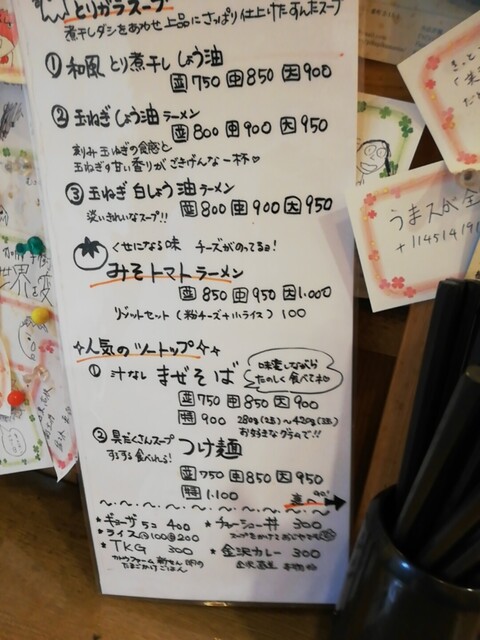 とりガラスープ
煮干しダシをあわせ上品にさっぱり仕上げたすんだスープ
① 和風とり煮干ししょう油
並750 中850 大900
② 玉ねぎしょう油ラーメン
並800 中900 大950
刻み玉ねぎの食感と
玉ねぎの甘い香りがごきげんな一杯♡
③ 玉ねぎ白しょう油ラーメン
淡いきれいなスープ!!
並800 中900 大950
くせになる味 チーズがのってるョ!
みそトマトラーメン
並850 中950 大1.000
リゾットセット(粉チーズ+小ライス) 100
人気のツートップ
① 汁なし まぜそば
味変しながら
たのしく食べてネ
並750 中850 大900
特900 280g(2玉)~420g(3玉)
お好きなグラムで!!
② 具だくさんスープ
する する食べれる!
つけ麺
並750 中850 大950
特1.100
裏へ
★ギョーザ5コ 400
★ライス小100中200
★TKG 300
たまごかけごはん
★チャーシュー丼 300
★金沢カレー 300
うまスが全
+114514191
世界を変